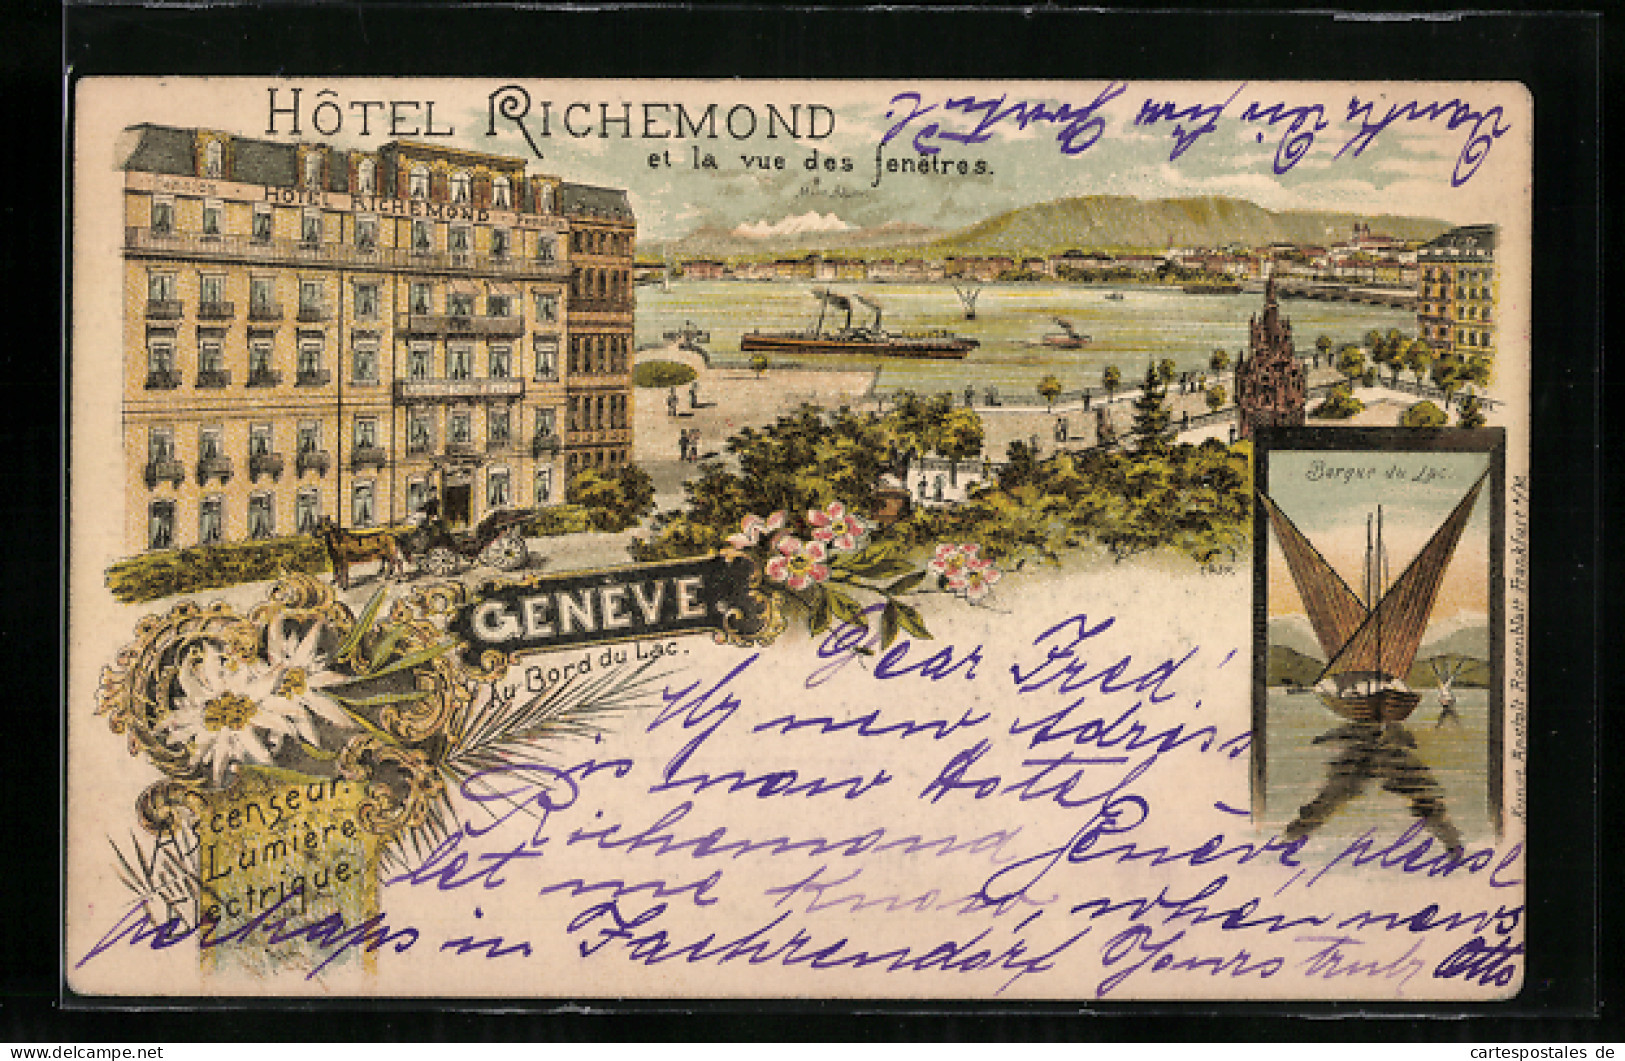 HÔTEL RICHEMOND
et la vue des fenêtres.
PENSION HOTEL RICHEMOND
GENÈVE.
Au Bord du Lac.
Ascenseur.
Lumière
Electrique.
Barque du Lac.
Kunst Anstalt Rosenblatt Frankfurt a/M.
Dear Fred!
My new Adress
is now Hotel
Richemond Genève, please
let me know, when news
perhaps in Faehrendorf Yours truly Otto
cartespostales de